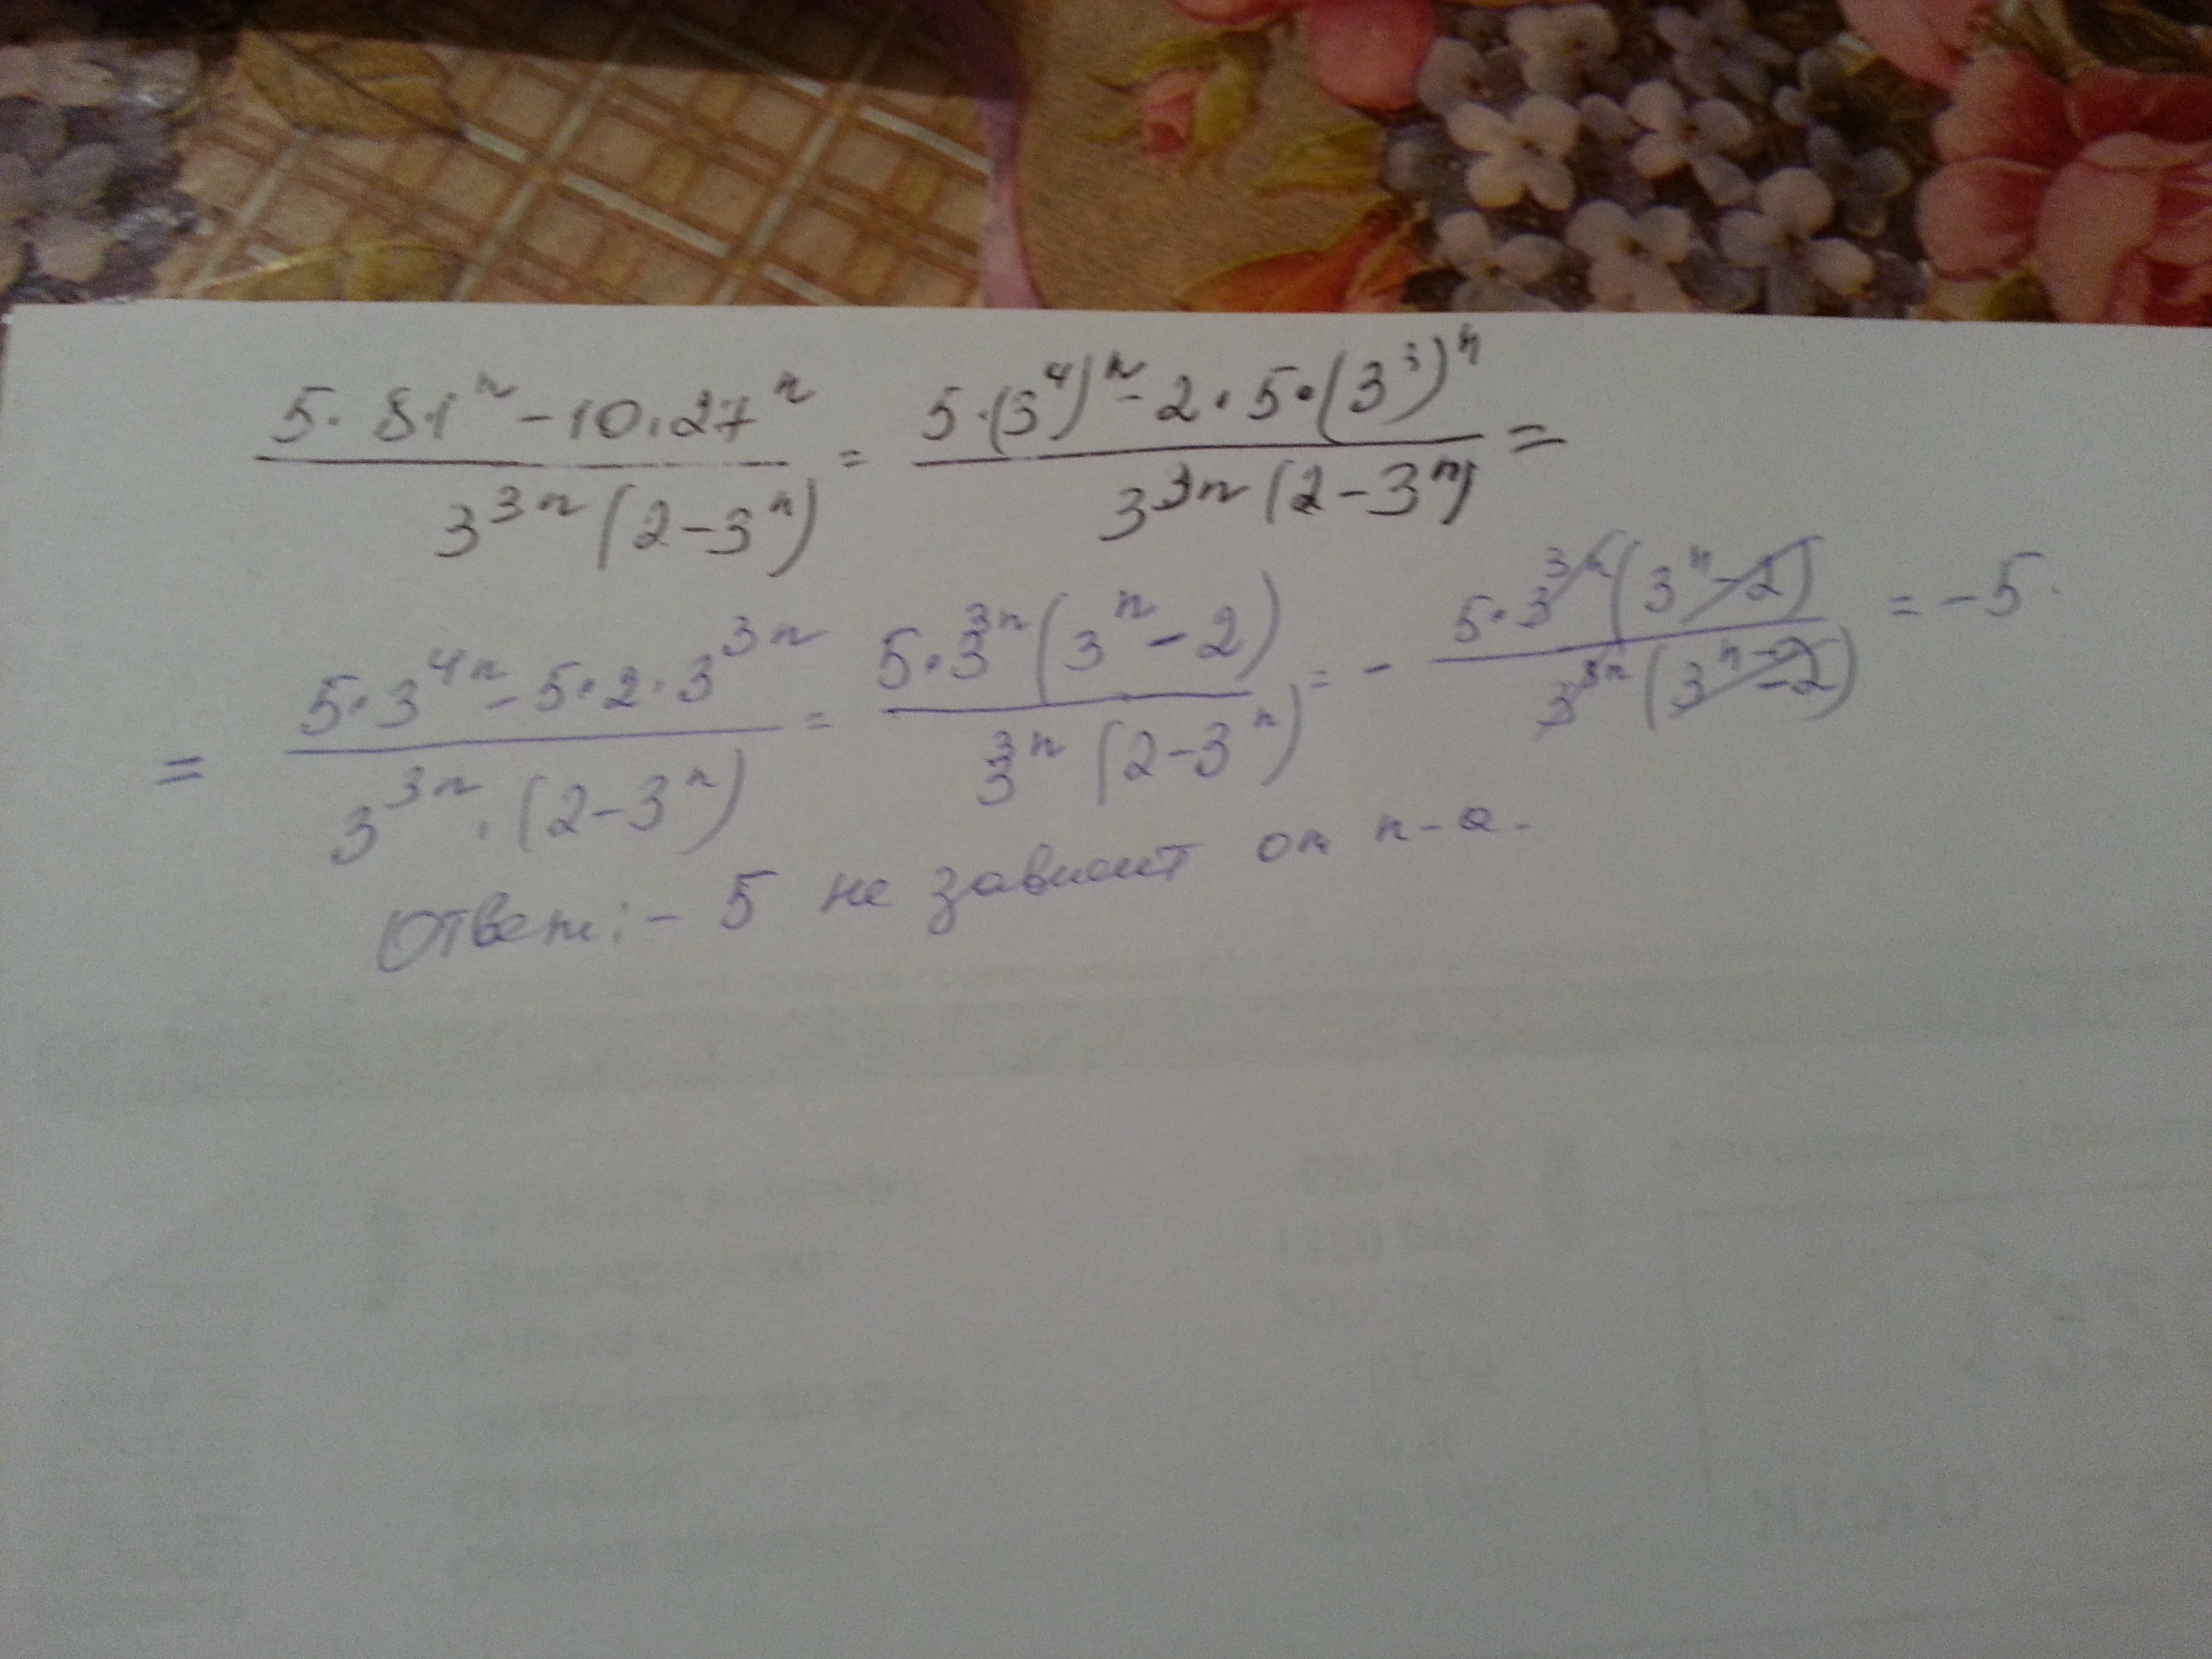 (5 · 81^n − 10 · 27^n) / (3^{3n} (2 − 3^n)) = (5 · (3^4)^n − 2 · 5 · (3^3)^n) / (3^{3n} (2 − 3^n)) =
= (5 · 3^{4n} − 5 · 2 · 3^{3n}) / (3^{3n} · (2 − 3^n)) = (5 · 3^{3n} (3^n − 2)) / (3^{3n} (2 − 3^n)) = − (5 · 3^{3n} (3^n − 2)) / (3^{3n} (3^n − 2)) = −5.
Ответ: −5 не зависит от n-а.